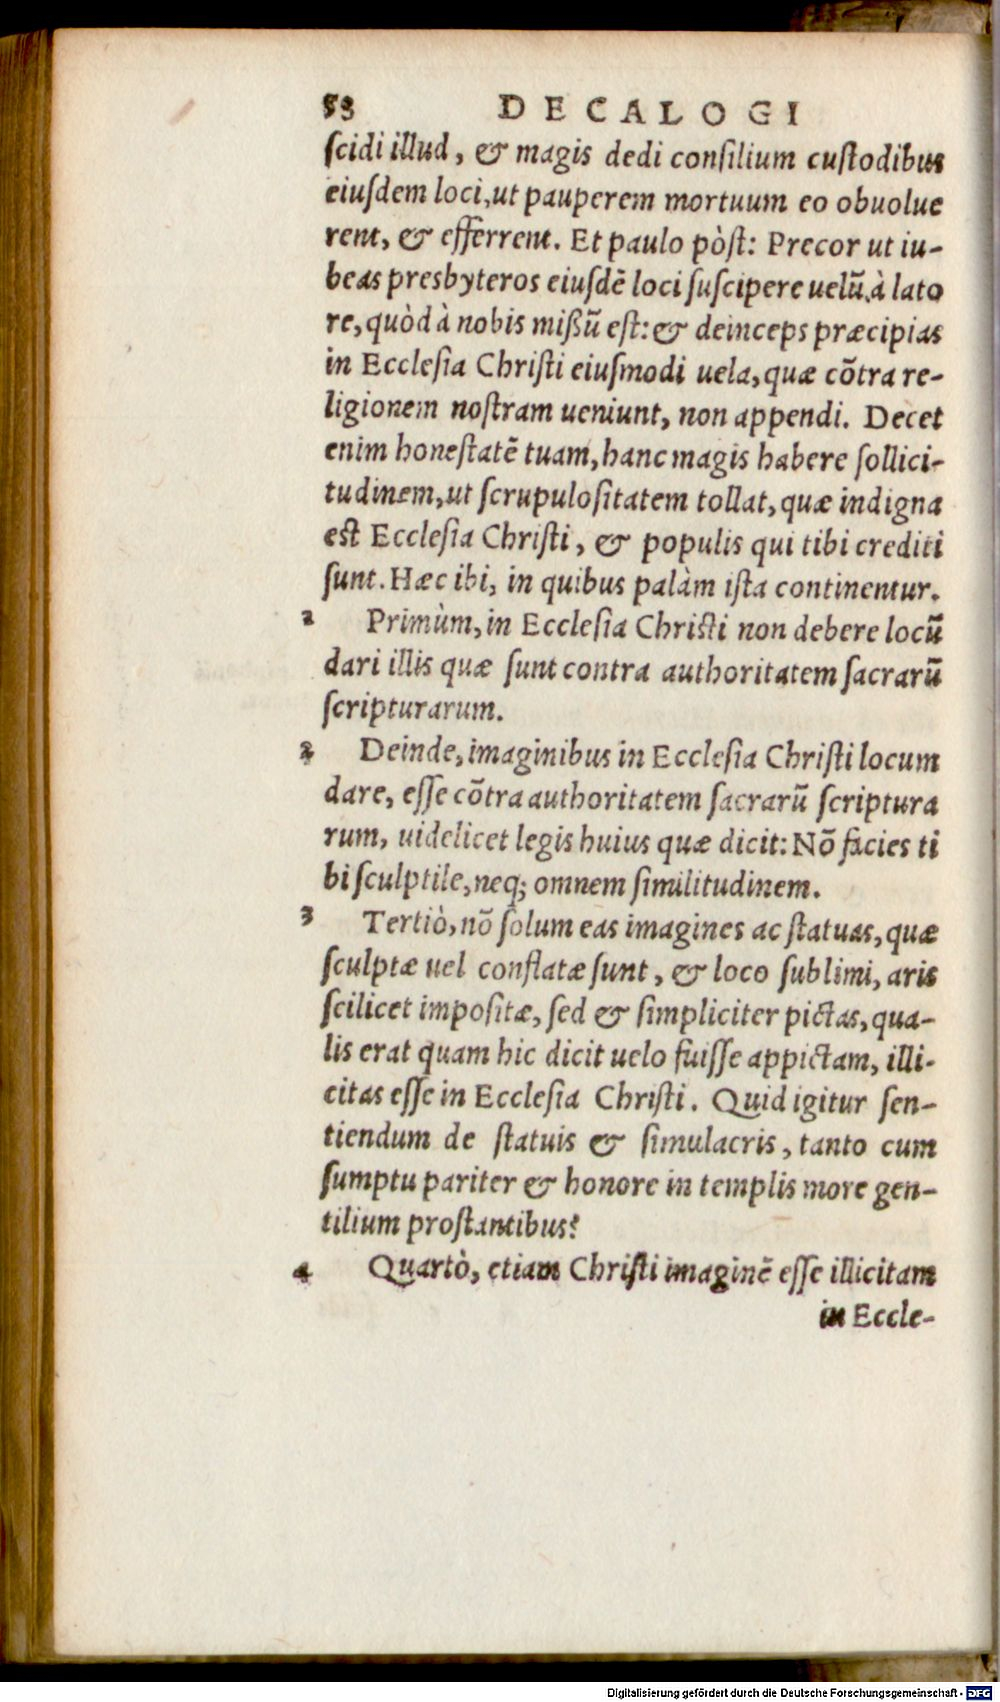 58 DECALOGI
ſcidi illud, & magis dedi conſilium cuſtodibus
eiuſdem loci, ut pauperem mortuum eo obuolue
rent, & efferrent. Et paulo pòſt: Precor ut iu-
beas presbyteros eiuſdē loci ſuſcipere uelū, à lato
re, quòd à nobis miſſū eſt: & deinceps præcipias
in Eccleſia Chriſti eiuſmodi uela, quæ cōtra re-
ligionem noſtram ueniunt, non appendi. Decet
enim honeſtatē tuam, hanc magis habere ſollici-
tudinem, ut ſcrupuloſitatem tollat, quæ indigna
eſt Eccleſia Chriſti, & populis qui tibi crediti
ſunt. Hæc ibi, in quibus palàm iſta continentur.
1 Primùm, in Eccleſia Chriſti non debere locū
dari illis quæ ſunt contra authoritatem ſacrarū
ſcripturarum.
2 Deinde, imaginibus in Eccleſia Chriſti locum
dare, eſſe cōtra authoritatem ſacrarū ſcriptura
rum, uidelicet legis huius quæ dicit: Nō facies ti
bi ſculptile, neq; omnem ſimilitudinem.
3 Tertiò, nō ſolum eas imagines ac ſtatuas, quæ
ſculptæ uel conflatæ ſunt, & loco ſublimi, aris
ſcilicet impoſitæ, ſed & ſimpliciter pictas, qua-
lis erat quam hic dicit uelo fuiſſe appictam, illi-
citas eſſe in Eccleſia Chriſti. Quid igitur ſen-
tiendum de ſtatuis & ſimulacris, tanto cum
ſumptu pariter & honore in templis more gen-
tilium proſtantibus?
4 Quartò, etiam Chriſti imaginē eſſe illicitam
in Eccle-
Digitalisierung gefördert durch die Deutsche Forschungsgemeinschaft - DFG